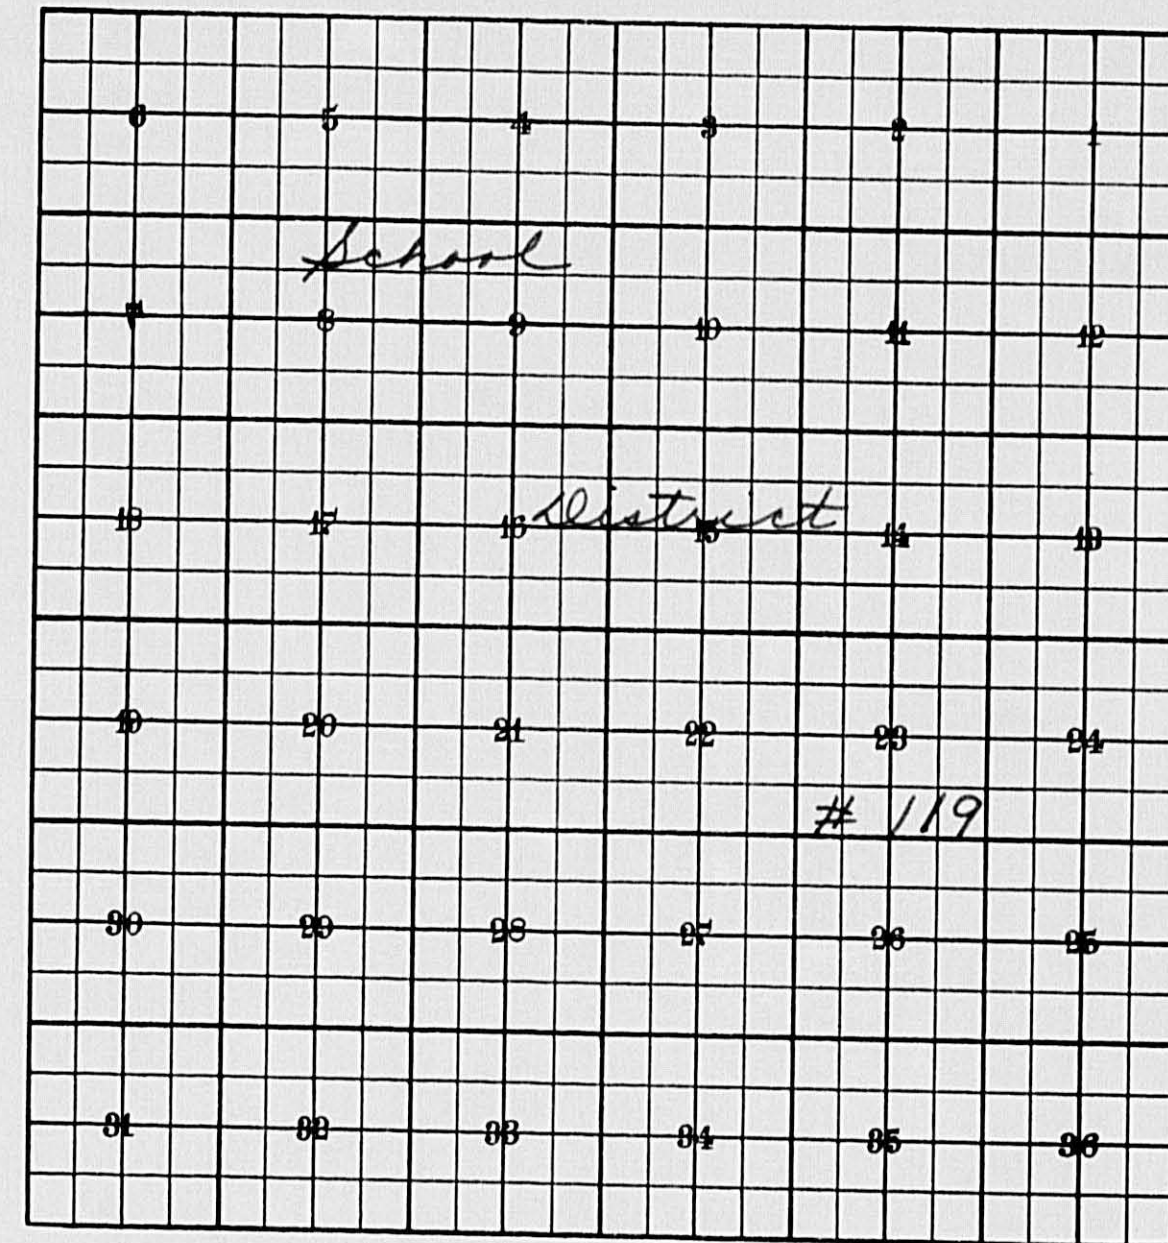 6 5 4 3 2 1
School
7 8 9 10 11 12
District
18 17 16 15 14 13
19 20 21 22 23 24
# 119
30 29 28 27 26 25
31 32 33 34 35 36